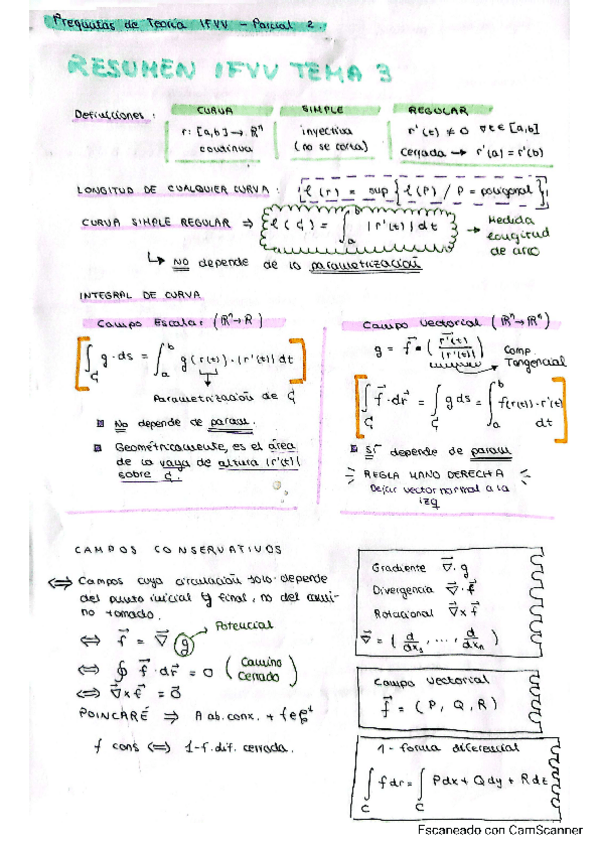 Preguntas de Teoría IFVV - Parcial 2.
RESUMEN IFVV TEMA 3
Definiciones:
CURVA
r: [a,b] → Rⁿ
continua
SIMPLE
inyectiva
(no se corta)
REGULAR
r'(t) ≠ 0 ∀t∈[a,b]
cerrada → r'(a) = r'(b)
LONGITUD DE CUALQUIER CURVA: ℓ(r) = sup { ℓ(P) / P = poligonal }
CURVA SIMPLE REGULAR ⇒ ℓ(ζ) = ∫ₐᵇ |r'(t)| dt → Medida longitud de arco
↳ NO depende de la parametrización
INTEGRAL DE CURVA
Campo Escalar (Rⁿ→R)
∫ g·ds = ∫ₐᵇ g(r(t))·|r'(t)| dt
Parametrización de ζ
No depende de param.
Geométricamente, es el área
de la vaya de altura |r'(t)|
sobre ζ.
Campo vectorial (Rⁿ→Rⁿ)
g = f · ( r'(t) / |r'(t)| )
Comp. Tangencial
∫ f·dr = ∫ g ds = ∫ₐᵇ f(r(t))·r'(t) dt
SÍ depende de param
REGLA MANO DERECHA
Dejar vector normal a la
izq
CAMPOS CONSERVATIVOS
⇔ Campos cuya circulación solo depende
del punto inicial y final, no del cami-
no tomado.
⇔ f = ∇ g → Potencial
⇔ ∮ f·dr = 0 (Camino cerrado)
⇔ ∇×f = 0
POINCARÉ ⇒ A ab. conx. + f∈ζ¹
f cons ⇔ 1-f.dif. cerrada.
Gradiente ∇·g
Divergencia ∇·f
Rotacional ∇×f
∇ = ( d/dx₁, ..., d/dxₙ )
Campo vectorial
f = (P, Q, R)
1 - forma diferencial
∫ f dr = ∫ Pdx + Qdy + Rdz
Escaneado con CamScanner